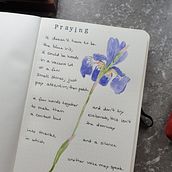 Praying
it doesn't have to be
the blue iris,
it could be weeds
in a vacant lot
a few
small stones; just
pay attention, then patch
a few words together
to make them
a contest but
into thanks,
- which
and don't try
elaborate, this isn't
the doorway
and a silence
another voice may speak.